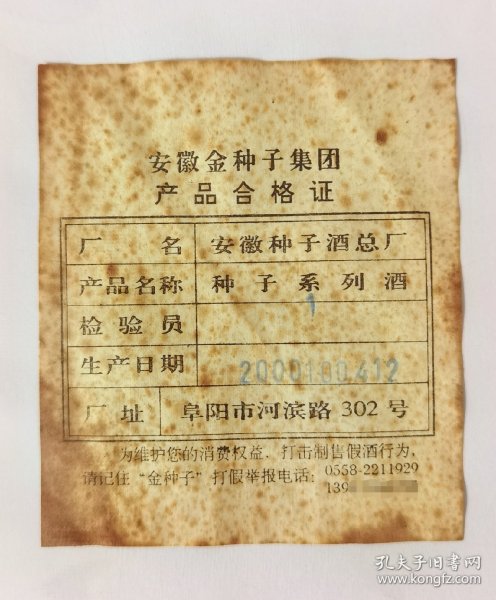 安徽金种子集团
产品合格证
厂名 安徽种子酒总厂
产品名称 种子系列酒
检验员 1
生产日期
厂址 阜阳市河滨路 302 号
为维护您的消费权益，打击制售假酒行为，
请记住“金种子”打假举报电话：0558-2211929
139
孔夫子旧书网
www.kongfz.com